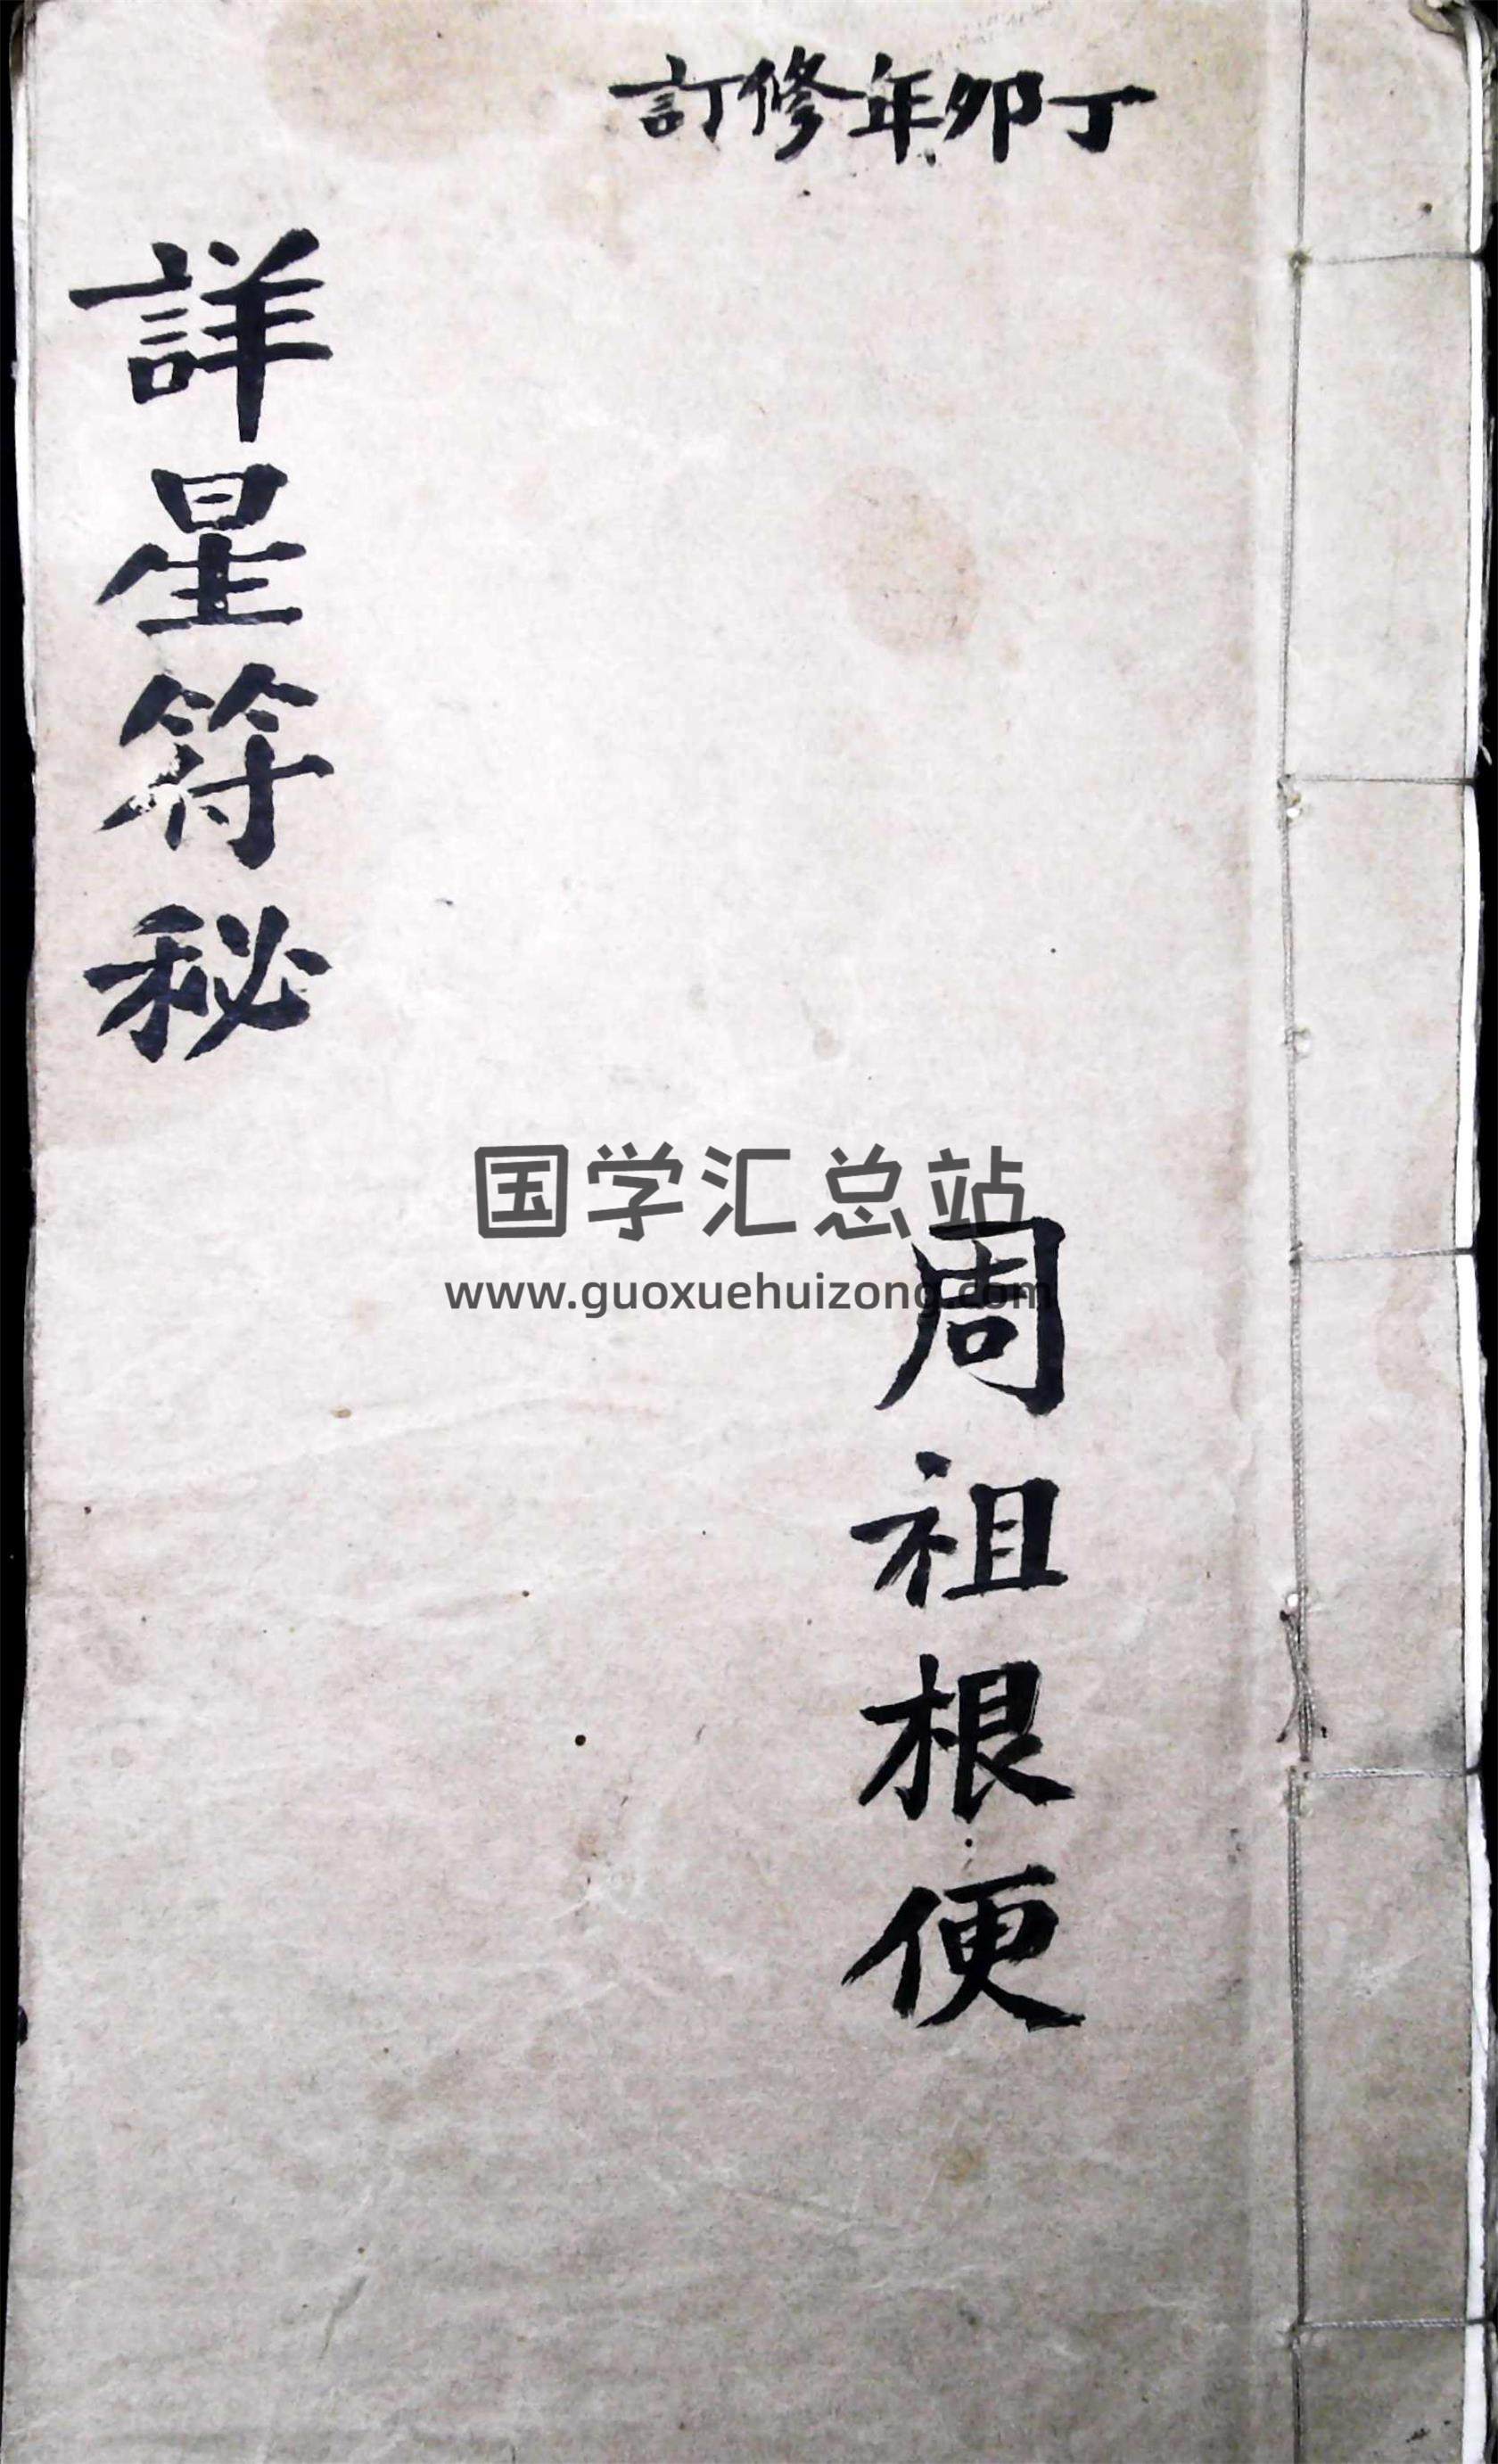 丁卯年修訂
周祖根便
詳星符秘
国学汇总站
www.guoxuehuizong.com